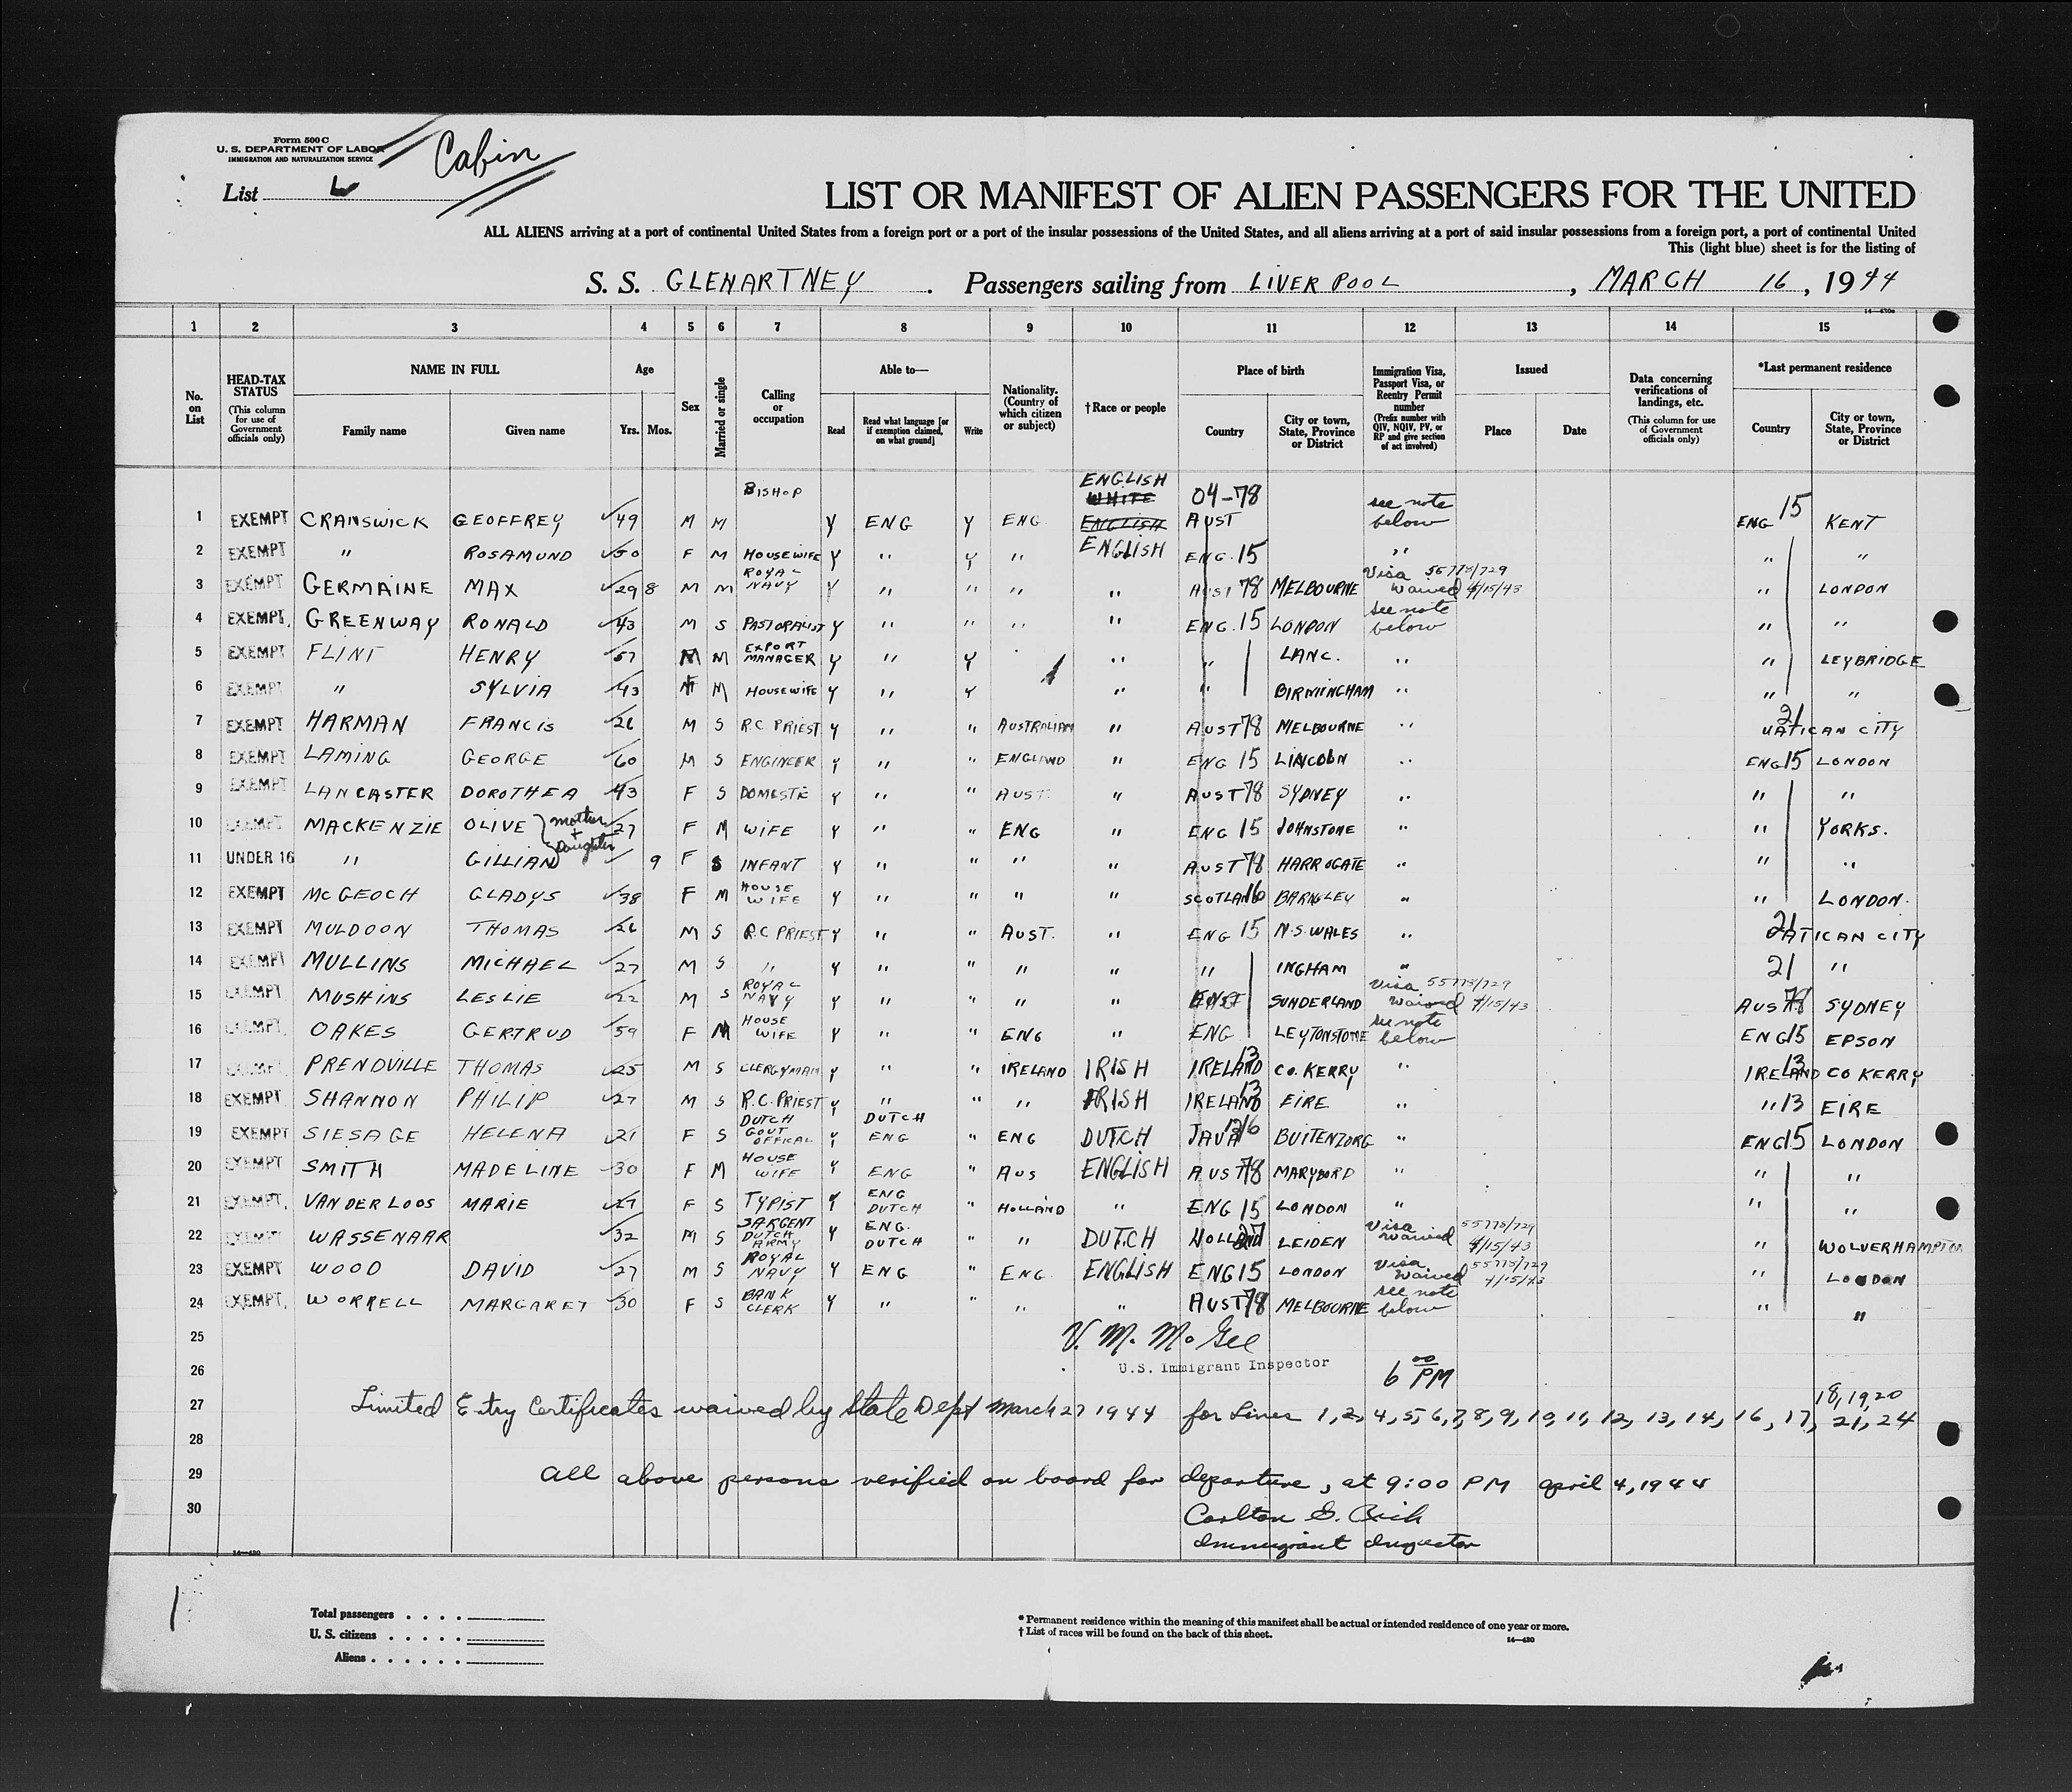 Form 500 C
U. S. DEPARTMENT OF LABOR
IMMIGRATION AND NATURALIZATION SERVICE
Cabin
List
LIST OR MANIFEST OF ALIEN PASSENGERS FOR THE UNITED
ALL ALIENS arriving at a port of continental United States from a foreign port or a port of the insular possessions of the United States, and all aliens arriving at a port of said insular possessions from a foreign port, a port of continental United
This (light blue) sheet is for the listing of
S. S. GLENARTNEY . Passengers sailing from LIVERPOOL , MARCH 16 , 1944
14—430a
1 2 3 4 5 6 7 8 9 10 11 12 13 14 15
No. on List
HEAD-TAX STATUS (This column for use of Government officials only)
NAME IN FULL
Family name Given name
Age
Yrs. Mos.
Sex
Married or single
Calling or occupation
Able to—
Read Read what language [or if exemption claimed, on what ground] Write
Nationality. (Country of which citizen or subject)
†Race or people
Place of birth
Country City or town, State, Province or District
Immigration Visa, Passport Visa, or Reentry Permit number (Prefix number with QIV, NQIV, PV, or RP and give section of act involved)
Issued
Place Date
Data concerning verifications of landings, etc. (This column for use of Government officials only)
*Last permanent residence
Country City or town, State, Province or District
1 EXEMPT CRANSWICK GEOFFREY 49 M M BISHOP Y ENG Y ENG. WHITE ENGLISH ENGLISH 04-78 AUST see note below ENG 15 KENT
2 EXEMPT " ROSAMUND 50 F M HOUSEWIFE Y " Y " ENGLISH ENG. 15 " " "
3 EXEMPT GERMAINE MAX 29 8 M M ROYAL NAVY Y " " " " AUST 78 MELBOURNE Visa waived 55778/729 4/15/43 " LONDON
4 EXEMPT. GREENWAY RONALD 43 M S PASTORALIST Y " " " " ENG. 15 LONDON see note below " "
5 EXEMPT FLINT HENRY 57 M M EXPORT MANAGER Y " Y " " LANC. " " LEYBRIDGE
6 EXEMPT " SYLVIA 43 F M HOUSEWIFE Y " Y " " BIRMINGHAM " " "
7 EXEMPT HARMAN FRANCIS 26 M S R.C PRIEST Y " " AUSTRALIAN " AUST 78 MELBOURNE " 21 VATICAN CITY
8 EXEMPT LAMING GEORGE 60 M S ENGINEER Y " " ENGLAND " ENG 15 LINCOLN " ENG 15 LONDON
9 EXEMPT LANCASTER DOROTHEA 43 F S DOMESTE Y " " AUST. " AUST 78 SYDNEY " " "
10 EXEMPT MACKENZIE OLIVE mother + daughter 27 F M WIFE Y " " ENG " ENG 15 JOHNSTONE " " YORKS.
11 UNDER 16 " GILLIAN 9 F S INFANT Y " " " " AUST 78 HARROGATE " " "
12 EXEMPT McGEOCH GLADYS 38 F M HOUSE WIFE Y " " " " SCOTLAN 16 BARNGLEY " " LONDON.
13 EXEMPT MULDOON THOMAS 26 M S R.C PRIEST Y " " AUST. " ENG 15 N.S. WALES " 21 VATICAN CITY
14 EXEMPT MULLINS MICHAEL 27 M S " Y " " " " " INGHAM " 21 "
15 EXEMPT MUSHINS LESLIE 22 M S ROYAL NAVY Y " " " " SUNDERLAND Visa waived 55778/729 4/15/43 AUS 78 SYDNEY
16 EXEMPT. OAKES GERTRUD 59 F M HOUSE WIFE Y " " ENG " ENG LEYTONSTONE see note below ENG 15 EPSON
17 EXEMPT PRENDVILLE THOMAS 25 M S CLERGYMAN Y " " IRELAND IRISH IRELAND 13 CO. KERRY " IRELAND 13 CO KERRY
18 EXEMPT SHANNON PHILIP 27 M S R.C. PRIEST Y " " " IRISH IRELAND 13 EIRE " " 13 EIRE
19 EXEMPT SIESAGE HELENA 21 F S DUTCH GOUT OFFICAL Y DUTCH ENG " ENG DUTCH JAVA BUITENZORG " ENG 15 LONDON
20 EXEMPT SMITH MADELINE 30 F M HOUSE WIFE Y ENG " AUS ENGLISH AUST 78 MARYBORD " " "
21 EXEMPT. VAN DER LOOS MARIE 27 F S TYPIST Y ENG DUTCH " HOLLAND " ENG 15 LONDON " " "
22 EXEMPT WASSENAAR 32 M S SARGENT DUTCH ARMY Y ENG. DUTCH " " DUTCH HOLLAND 27 LEIDEN Visa waived 55778/729 4/15/43 " WOLVERHAMPTON
23 EXEMPT WOOD DAVID 27 M S ROYAL NAVY Y ENG " ENG. ENGLISH ENG 15 LONDON Visa waived 55778/729 4/15/43 " LONDON
24 EXEMPT. WORRELL MARGARET 30 F S BANK CLERK Y " " " " AUST 78 MELBOURNE see note below " "
25 V. M. McGee
26 U.S. Immigrant Inspector 6 00 PM
27 Limited Entry Certificates waived by State Dept March 27 1944 for Lines 1, 2, 4, 5, 6, 7, 8, 9, 10, 11, 12, 13, 14, 16, 17, 18, 19, 20 21, 24
28
29 All above persons verified on board for departure, at 9:00 PM april 4, 1944
30 Carlton
Immigrant Inspector
14—430
Total passengers . . . .
U. S. citizens . . . . .
Aliens . . . . . .
* Permanent residence within the meaning of this manifest shall be actual or intended residence of one year or more.
† List of races will be found on the back of this sheet.
14—430